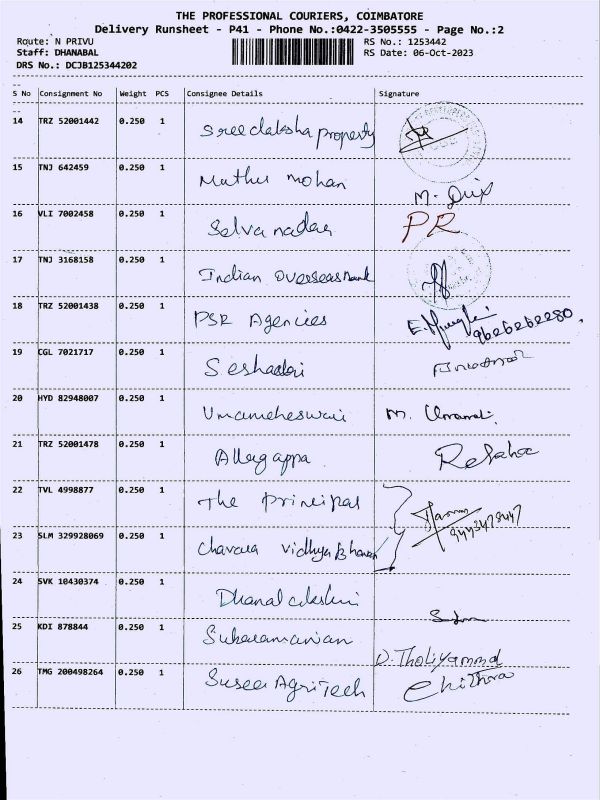 THE PROFESSIONAL COURIERS, COIMBATORE
Delivery Runsheet - P41 - Phone No.:0422-3505555 - Page No.:2
Route: N PRIVU RS No.: 1253442
Staff: DHANABAL RS Date: 06-Oct-2023
DRS No.: DCJB125344202
S No Consignment No Weight PCS Consignee Details Signature
14 TRZ 52001442 0.250 1 Sree daksha property
15 TNJ 642459 0.250 1 Muthu mohan M.
16 VLI 7002458 0.250 1 Selva nadar PR
17 TNJ 3168158 0.250 1 Indian Overseas Bank
18 TRZ 52001438 0.250 1 PSR Agencies 9626262280.
19 CGL 7021717 0.250 1 Seshadri
20 HYD 82948007 0.250 1 Umameheswari M.
21 TRZ 52001478 0.250 1 Allagappa
22 TVL 4998877 0.250 1 The principal
23 SLM 329928069 0.250 1 Chavara vidhya Bhavan 9443478447
24 SVK 10430374 0.250 1 Dhanalakshmi
25 KDI 878844 0.250 1 Subaramanian D. Tholiyammal
26 TMG 200498264 0.250 1 Susee AgriTech Chithra